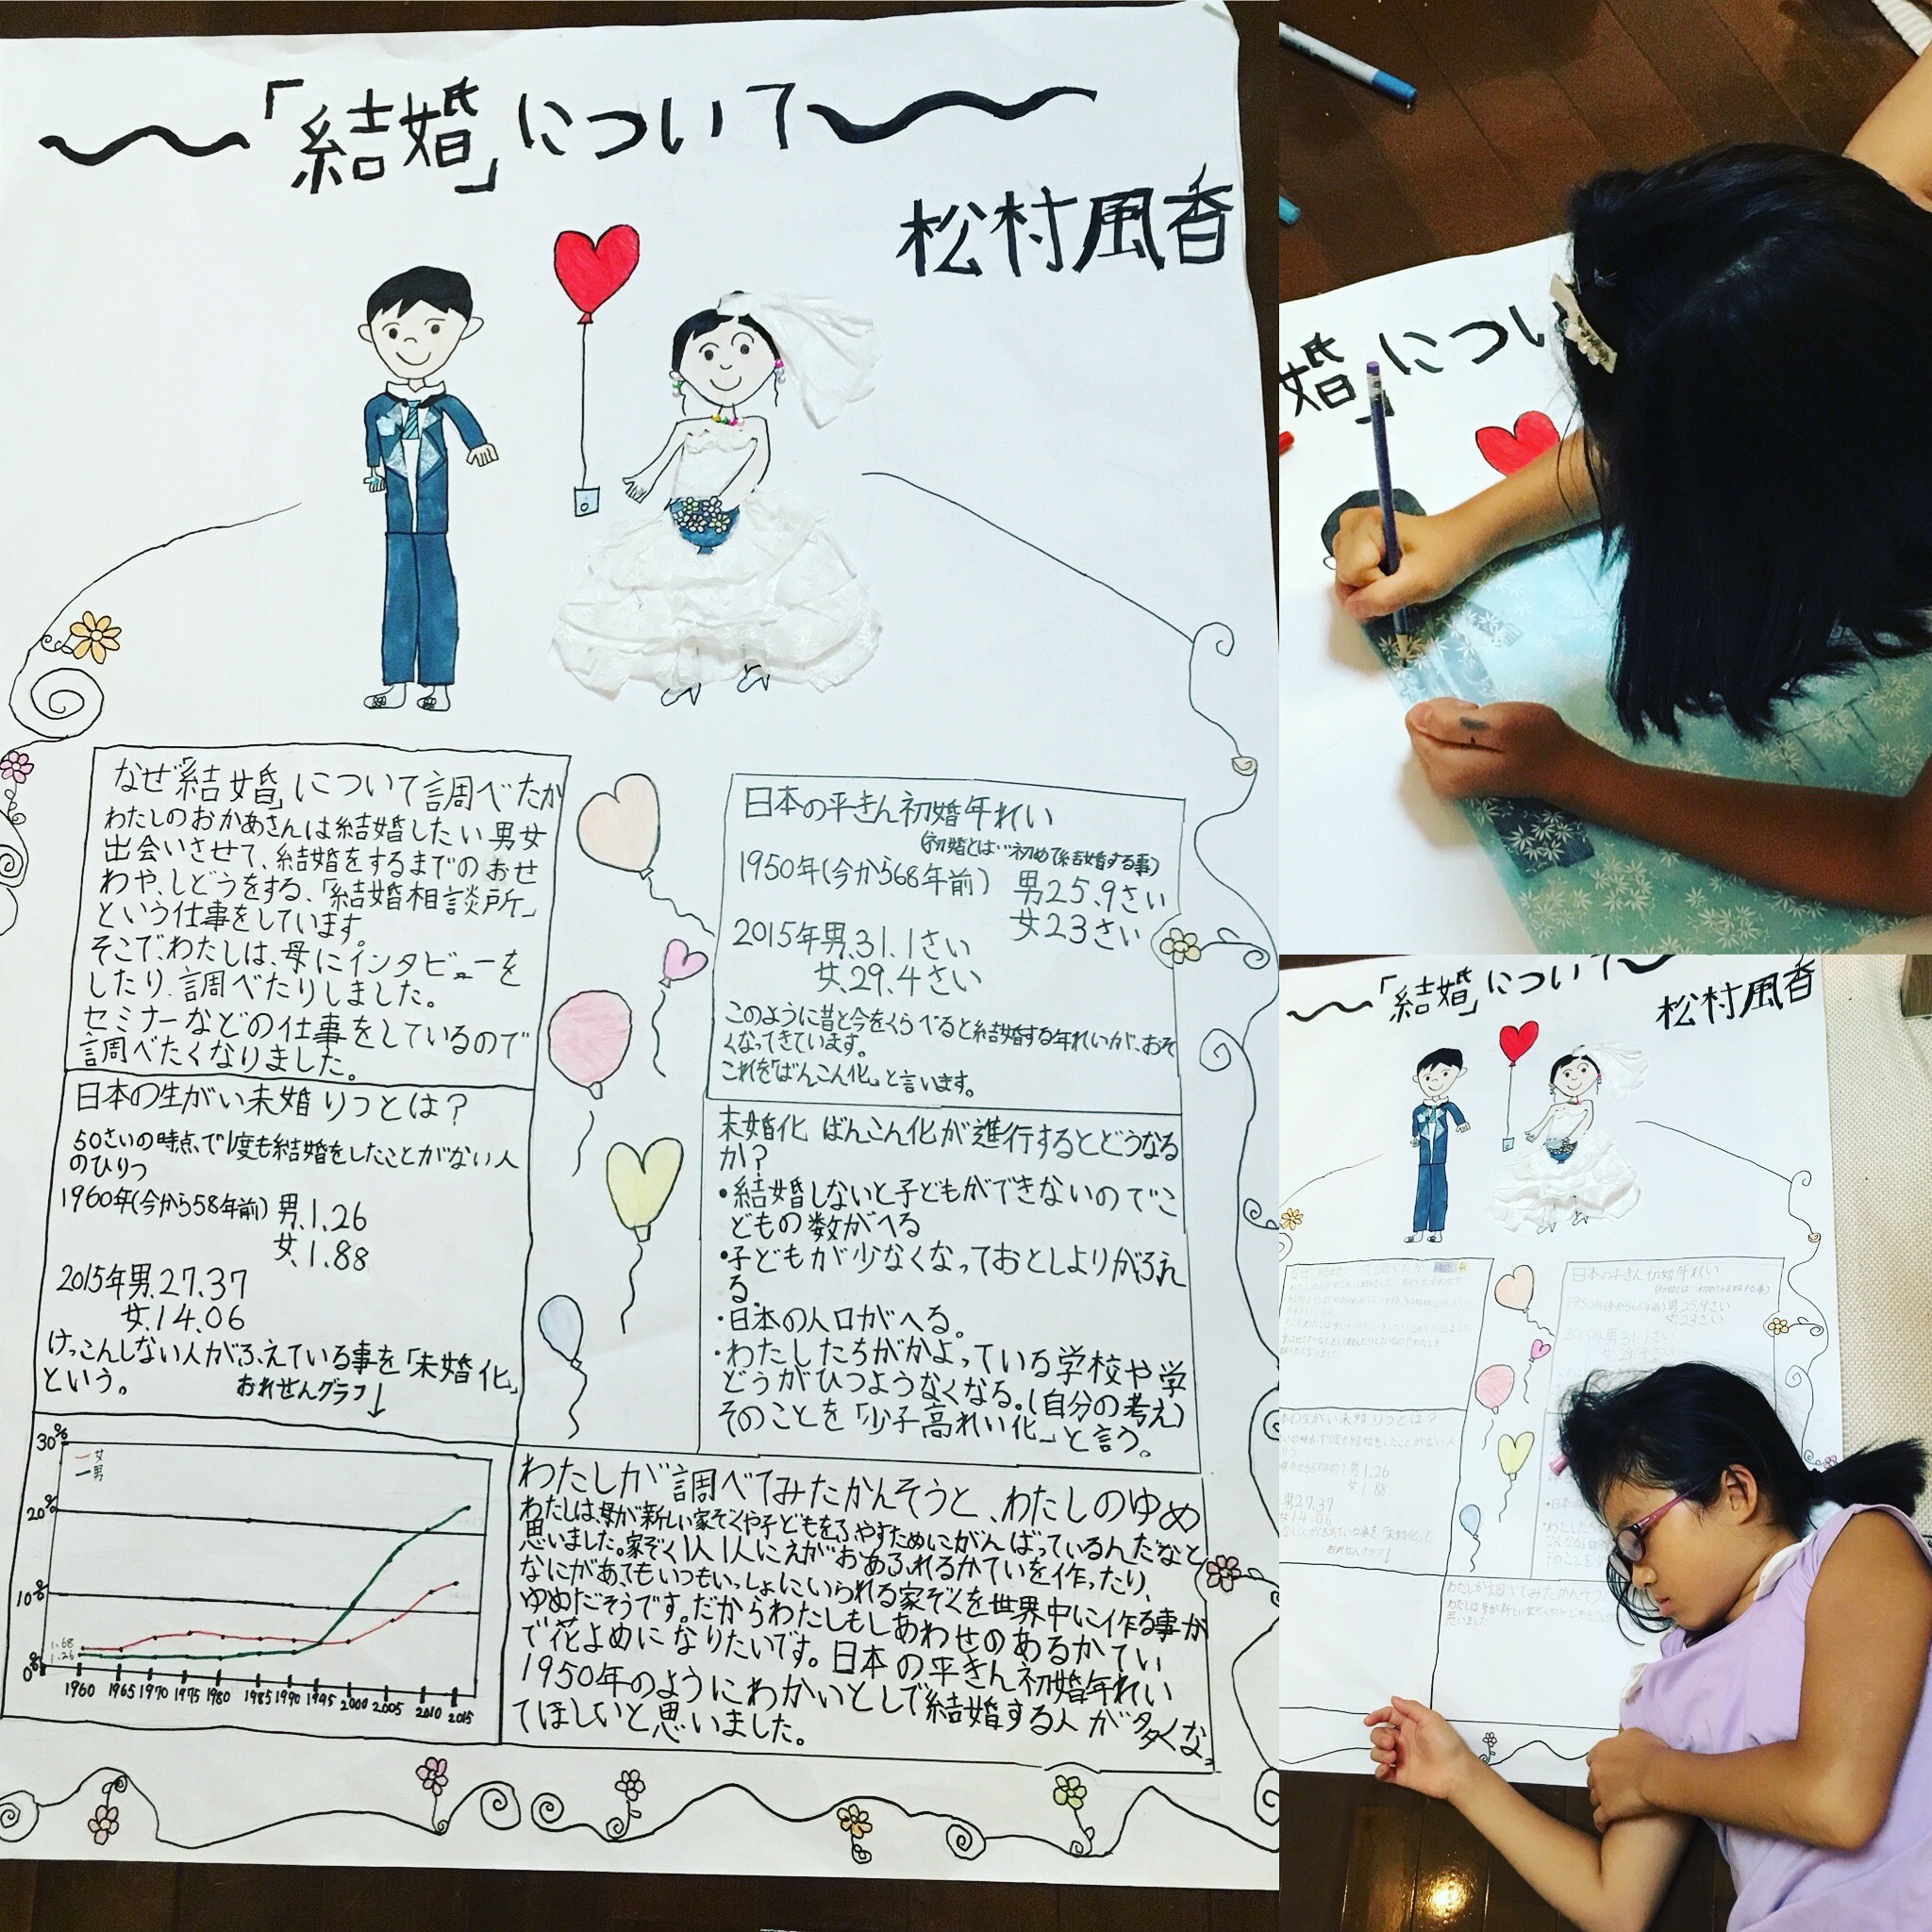 「結婚」について
松村風香
なぜ「結婚」について調べたか
わたしのおかあさんは結婚したい男女
出会いさせて、結婚をするまでのおせ
わや、しどうをする、「結婚相談所」
という仕事をしています。
そこで、わたしは、母にインタビューを
したり、調べたりしました。
セミナーなどの仕事をしているので
調べたくなりました。
日本の生がい未婚りつとは?
50さいの時点で1度も結婚をしたことがない人
のひりつ
1960年(今から58年前) 男.1.26
女.1.88
2015年男.27.37
女.14.06
けっこんしない人がふえている事を「未婚化」
という。
おれせんグラフ↓
30%
20%
10%
0%
女
男
1.68
1.26
1960 1965 1970 1975 1980 1985 1990 1995 2000 2005 2010 2015
日本の平きん初婚年れい
(初婚とは…初めて結婚する事)
1950年(今から68年前) 男25.9さい
女23さい
2015年男.31.1さい
女.29.4さい
このように昔と今をくらべると結婚する年れいが、おそ
くなってきています。
これを「ばんこん化」と言います。
未婚化 ばんこん化が進行するとどうなる
か?
・結婚しないと子どもができないのでこ
どもの数がへる
・子どもが少なくなっておとしよりがふえ
る。
・日本の人口がへる。
・わたしたちがかよっている学校や学
どうがひつようなくなる。(自分の考え)
そのことを「少子高れい化」と言う。
わたしが調べてみたかんそうと、わたしのゆめ
わたしは、母が新しい家ぞくや子どもをふやすためにがんばっているんだなと
思いました。家ぞく1人1人にえがおあふれるかていを作ったり、
なにがあってもいつもいっしょにいられる家ぞくを世界中に作る事が
ゆめだそうです。だからわたしもしあわせのあるかてい
で花よめになりたいです。日本の平きん初婚年れい
1950年のようにわかいとしで結婚する人が多くな
てほしいと思いました。
婚」につい
「結婚」について
松村風香
日本の平きん初婚年れい